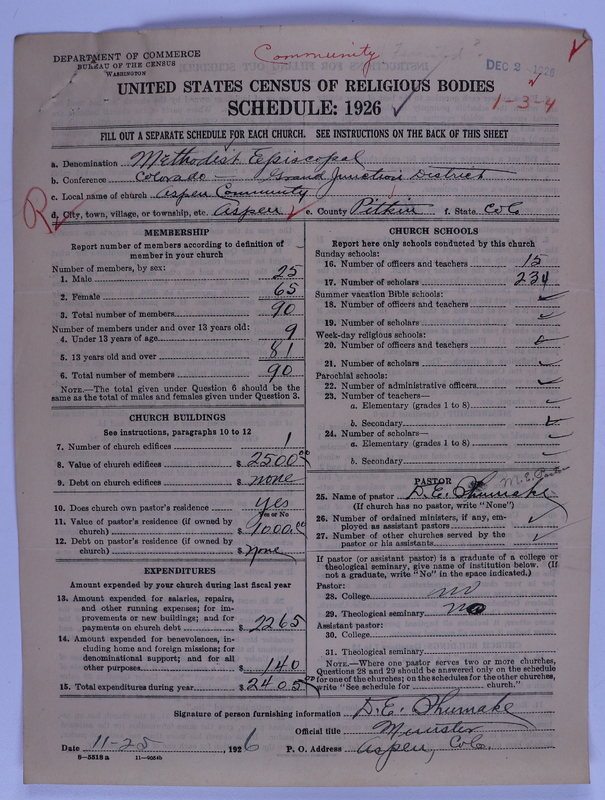 DEPARTMENT OF COMMERCE
BUREAU OF THE CENSUS
WASHINGTON
Community
DEC 2 1926
UNITED STATES CENSUS OF RELIGIOUS BODIES
SCHEDULE: 1926
1-3-4
FILL OUT A SEPARATE SCHEDULE FOR EACH CHURCH. SEE INSTRUCTIONS ON THE BACK OF THIS SHEET
a. Denomination Methodist Episcopal
b. Conference Colorado — Grand Junction District
c. Local name of church Aspen Community
R
d. City, town, village, or township, etc. Aspen e. County Pitkin f. State Col
MEMBERSHIP
Report number of members according to definition of
member in your church
Number of members, by sex:
1. Male 25
2. Female 65
3. Total number of members 90
Number of members under and over 13 years old:
4. Under 13 years of age 9
5. 13 years old and over 81
6. Total number of members 90
NOTE.—The total given under Question 6 should be
the same as the total of males and females given under Question 3.
CHURCH BUILDINGS
See instructions, paragraphs 10 to 12
7. Number of church edifices 1
8. Value of church edifices $ 2500.00
9. Debt on church edifices $ none
10. Does church own pastor's residence yes
Yes or No
11. Value of pastor's residence (if owned by
church) $ 1000.00
12. Debt on pastor's residence (if owned by
church) $ none
EXPENDITURES
Amount expended by your church during last fiscal year
13. Amount expended for salaries, repairs,
and other running expenses; for im-
provements or new buildings; and for
payments on church debt $ 2265
14. Amount expended for benevolences, in-
cluding home and foreign missions; for
denominational support; and for all
other purposes $ 140
15. Total expenditures during year $ 2405.00
CHURCH SCHOOLS
Report here only schools conducted by this church
Sunday schools:
16. Number of officers and teachers 15
17. Number of scholars 234
Summer vacation Bible schools:
18. Number of officers and teachers
19. Number of scholars
Week-day religious schools:
20. Number of officers and teachers
21. Number of scholars
Parochial schools:
22. Number of administrative officers
23. Number of teachers—
a. Elementary (grades 1 to 8)
b. Secondary
24. Number of scholars—
a. Elementary (grades 1 to 8)
b. Secondary
PASTOR
25. Name of pastor D. E. Shumake
(If church has no pastor, write "None")
26. Number of ordained ministers, if any, em-
ployed as assistant pastors
27. Number of other churches served by the
pastor or his assistants
If pastor (or assistant pastor) is a graduate of a college or
theological seminary, give name of institution below. (If
not a graduate, write "No" in the space indicated.)
Pastor:
28. College no
29. Theological seminary no
Assistant pastor:
30. College
31. Theological seminary
NOTE.—Where one pastor serves two or more churches,
Questions 28 and 29 should be answered only on the schedule
for one of the churches; on the schedules for the other churches,
write "See schedule for church."
Signature of person furnishing information D. E. Shumake
Official title Minister
Date 11-25, 1926 P. O. Address Aspen, Col.
8-5518 a 11-9054b